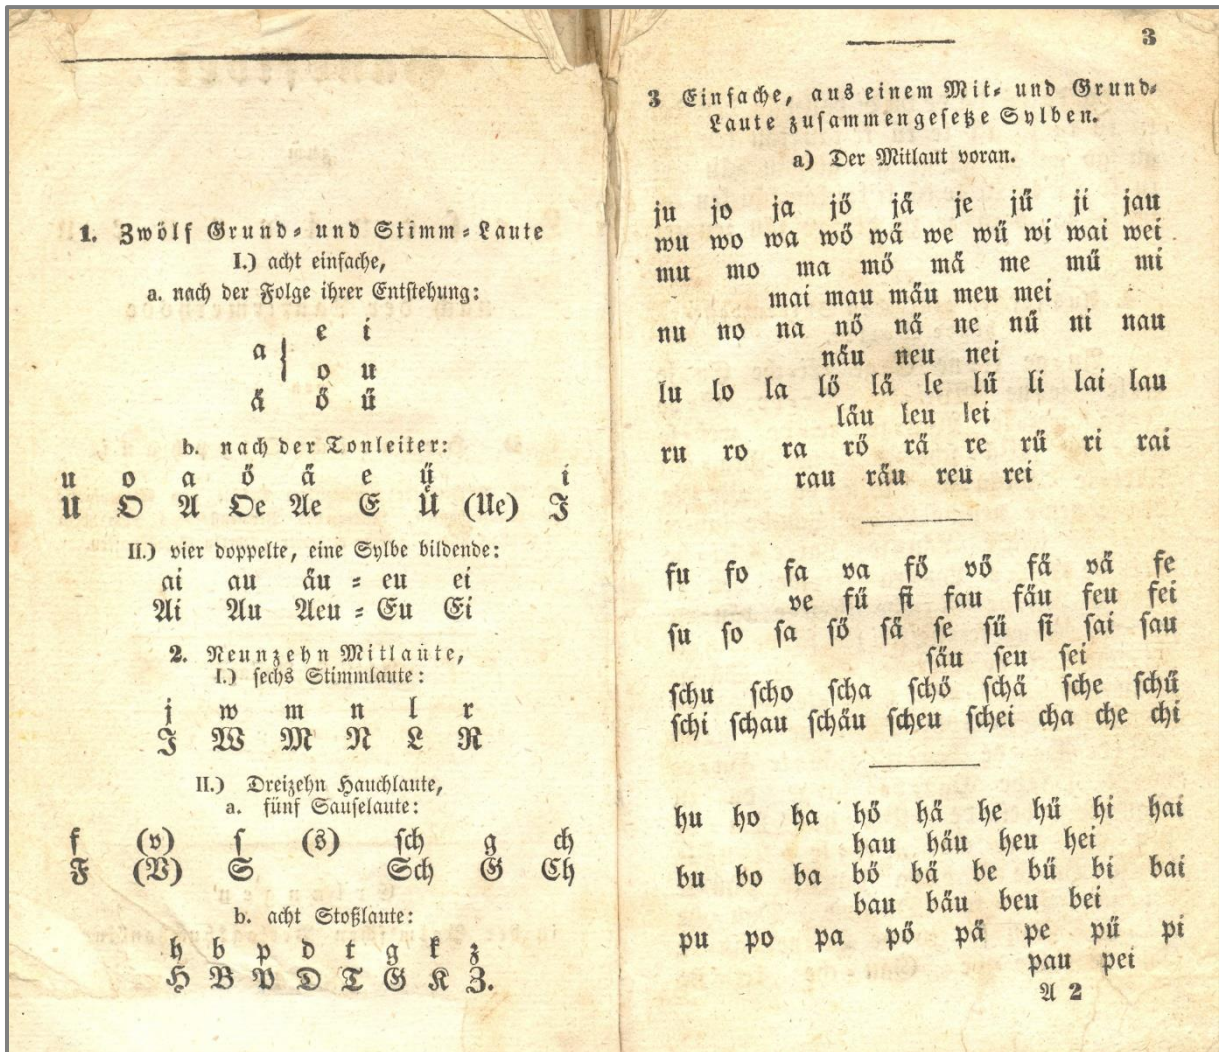 1. Zwölf Grund- und Stimm-Laute
I.) acht einfache,
a. nach der Folge ihrer Entstehung:
e i
a {
o u
ä ö ü
b. nach der Tonleiter:
u o a ö ä e ü i
U O A Oe Ae E Ü (Ue) I
II.) vier doppelte, eine Sylbe bildende:
ai au äu - eu ei
Ai Au Aeu - Eu Ei
2. Neunzehn Mitlaüte,
I.) sechs Stimmlaute:
j w m n l r
J W M N L R
II.) Dreizehn Hauchlaute,
a. fünf Sauselaute:
f (v) ſ (s) ſch g ch
F (V) S Sch G Ch
b. acht Stoßlaute:
h b p d t g k z
H B P D T G K Z.
3
3 Einfache, aus einem Mit- und Grund-
Laute zuſammengeſetze Sylben.
a) Der Mitlaut voran.
ju jo ja jö jä je jü ji jau
wu wo wa wö wä we wü wi wai wei
mu mo ma mö mä me mü mi
mai mau mäu meu mei
nu no na nö nä ne nü ni nau
näu neu nei
lu lo la lö lä le lü li lai lau
läu leu lei
ru ro ra rö rä re rü ri rai
rau räu reu rei
fu fo fa va fö vö fä vä fe
ve fü fi fau fäu feu fei
ſu ſo ſa ſö ſä ſe ſü ſi ſai ſau
ſäu ſeu ſei
ſchu ſcho ſcha ſchö ſchä ſche ſchü
ſchi ſchau ſchäu ſcheu ſchei cha che chi
hu ho ha hö hä he hü hi hai
hau häu heu hei
bu bo ba bö bä be bü bi bai
bau bäu beu bei
pu po pa pö pä pe pü pi
pau pei
A 2